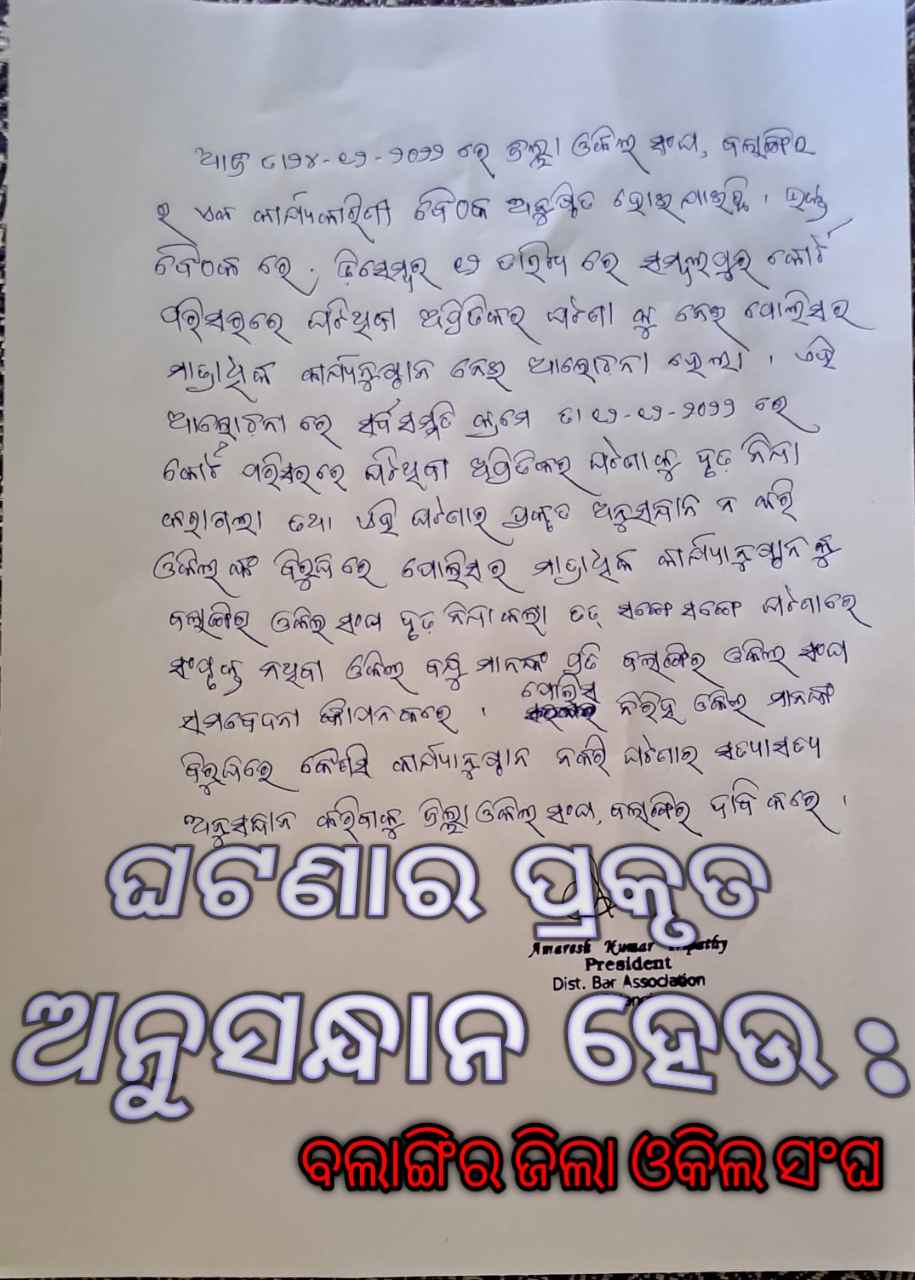 ଆଜ ତା୨୪-୧୨-୨୦୨୨ ରେ ଜିଲ୍ଲା ଓକିଲ ସଂଘ, ବଲାଙ୍ଗିର
ର ଏକ କାର୍ଯ୍ୟକାରିଣୀ ବୈଠକ ଅନୁଷ୍ଠିତ ହୋଇଯାଇଛି । ଉକ୍ତ
ବୈଠକ ରେ, ଡ଼ିସେମ୍ବର ୧୨ ତାରିଖ ରେ ସମ୍ବଲପୁର କୋର୍ଟ
ପରିସରରେ ଘଟିଥିବା ଅପ୍ରିତିକର ଘଟଣା କୁ ନେଇ ପୋଲିସର
ମାତ୍ରାଧିକ କାର୍ଯ୍ୟାନୁଷ୍ଠାନ ନେଇ ଆଲୋଚନା ହେଲା । ଏହି
ଆଲୋଚନା ରେ ସର୍ବସମ୍ମତି କ୍ରମେ ତା ୧୨-୧୨-୨୦୨୨ ରେ
କୋର୍ଟ ପରିସରରେ ଘଟିଥିବା ଅପ୍ରିତିକର ଘଟଣା କୁ ଦୃଢ଼ ନିନ୍ଦା
କରାଗଲା ତଥା ଏହି ଘଟଣାର ପ୍ରକୃତ ଅନୁସନ୍ଧାନ ନ କରି
ଓକିଲ ଙ୍କ ବିରୁଦ୍ଧ ରେ ପୋଲିସ ର ମାତ୍ରାଧିକ କାର୍ଯ୍ୟାନୁଷ୍ଠାନ କୁ
ବଲାଙ୍ଗିର ଓକିଲ ସଂଘ ଦୃଢ଼ ନିନ୍ଦା କଲା ତତ୍ ସଙ୍ଗେ ସଙ୍ଗେ ଘଟଣାରେ
ସଂପୃକ୍ତ ନଥିବା ଓକିଲ ବନ୍ଧୁ ମାନଙ୍କ ପ୍ରତି ବଲାଙ୍ଗିର ଓକିଲ ସଂଘ
ସମବେଦନା ଜ୍ଞାପନ କରେ । ପୋଲିସ ନିରିହ ଓକିଲ ମାନଙ୍କ
ବିରୁଦ୍ଧରେ କୌଣସି କାର୍ଯ୍ୟାନୁଷ୍ଠାନ ନକରି ଘଟଣାର ସତ୍ୟାସତ୍ୟ
ଅନୁସନ୍ଧାନ କରିବାକୁ ଜିଲ୍ଲା ଓକିଲ ସଂଘ, ବଲାଙ୍ଗିର ଦାବି କରେ ।
ଘଟଣାର ପ୍ରକୃତ
Amaresh Kumar
President
Dist. Bar Association
ଅନୁସନ୍ଧାନ ହେଉ :
ବଲାଙ୍ଗିର ଜିଲା ଓକିଲ ସଂଘ